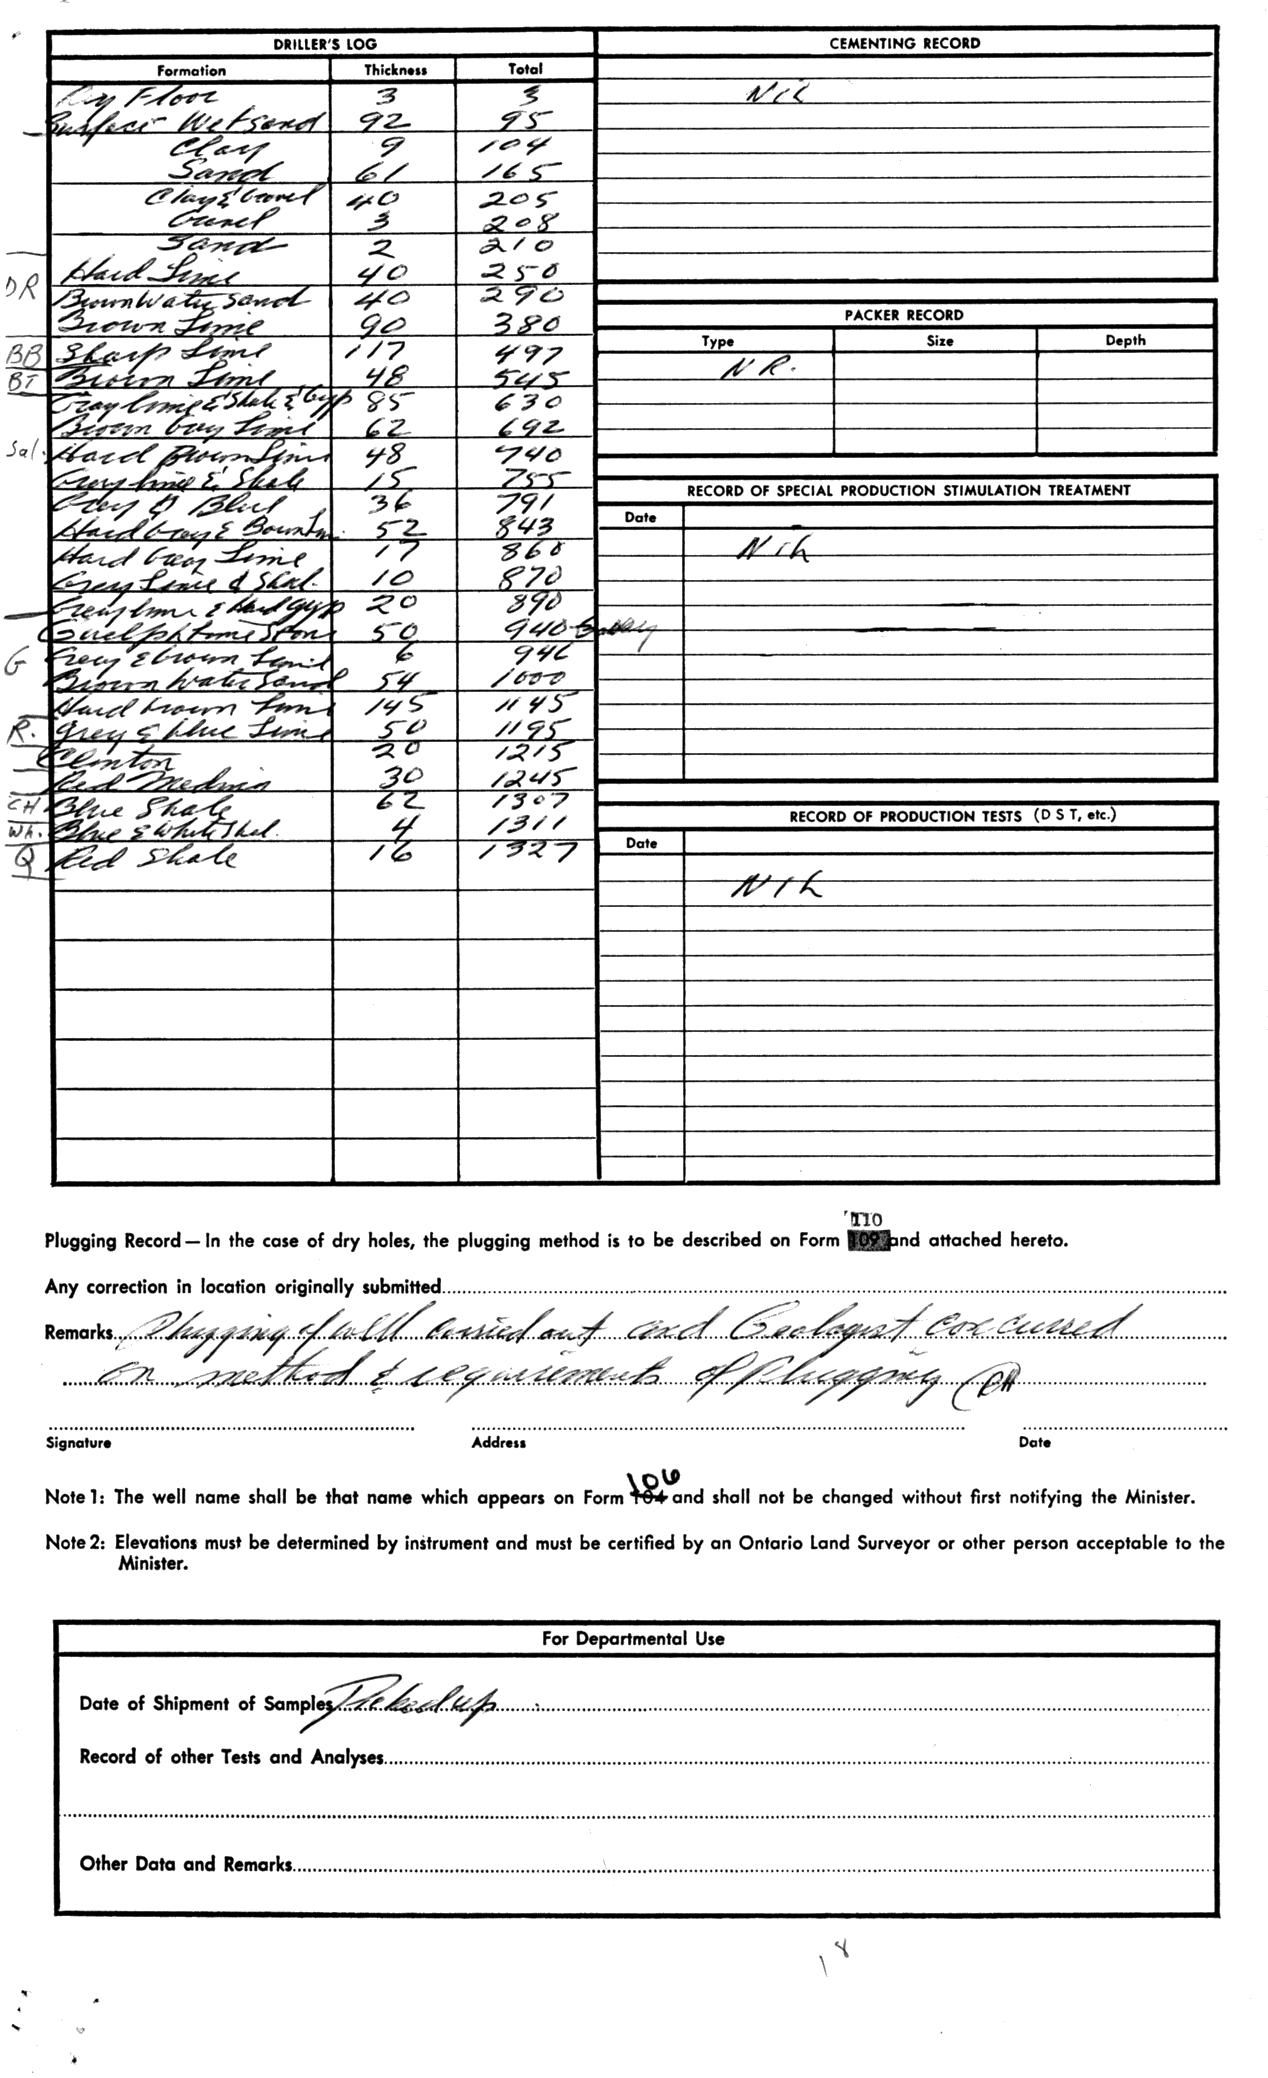 DRILLER'S LOG
Formation Thickness Total
Floor 3 3
Surface Wet sand 92 95
Clay 9 104
Sand 61 165
Clay & Gravel 40 205
Gravel 3 208
Sand 2 210
Hard Lime 40 250
DR
Brown Water Sand 40 290
Brown Lime 90 380
BB Sharp Lime 117 497
BT Brown Lime 48 545
Gray lime & Shale & Gyp 85 630
Brown Gray Lime 62 692
Sal. Hard Brown Lime 48 740
Grey lime & Shale 15 755
Grey & Blue 36 791
Hard Gray & Brown Lm. 52 843
Hard Gray Lime 17 860
Grey Lime & Shal. 10 870
Grey lime & Hard gyp 20 890
Guelph Lime Stone 50 940
G Grey & brown Lime 6 946
Brown Water Sand 54 1000
Hard brown Lime 145 1145
R. Grey & blue Lime 50 1195
Clinton 20 1215
Red Medina 30 1245
CH Blue Shale 62 1307
Wh. Blue & White Shal. 4 1311
Q Red Shale 16 1327
CEMENTING RECORD
Nil
PACKER RECORD
Type Size Depth
NR.
RECORD OF SPECIAL PRODUCTION STIMULATION TREATMENT
Date
Nil
RECORD OF PRODUCTION TESTS (D S T, etc.)
Date
Nil
110
Plugging Record — In the case of dry holes, the plugging method is to be described on Form 109 and attached hereto.
Any correction in location originally submitted
Remarks Plugging of well carried out and Geologist concurred
on method & requirements of Plugging
Signature Address Date
106
Note 1: The well name shall be that name which appears on Form 104 and shall not be changed without first notifying the Minister.
Note 2: Elevations must be determined by instrument and must be certified by an Ontario Land Surveyor or other person acceptable to the
Minister.
For Departmental Use
Date of Shipment of Samples Picked up
Record of other Tests and Analyses
Other Data and Remarks
18